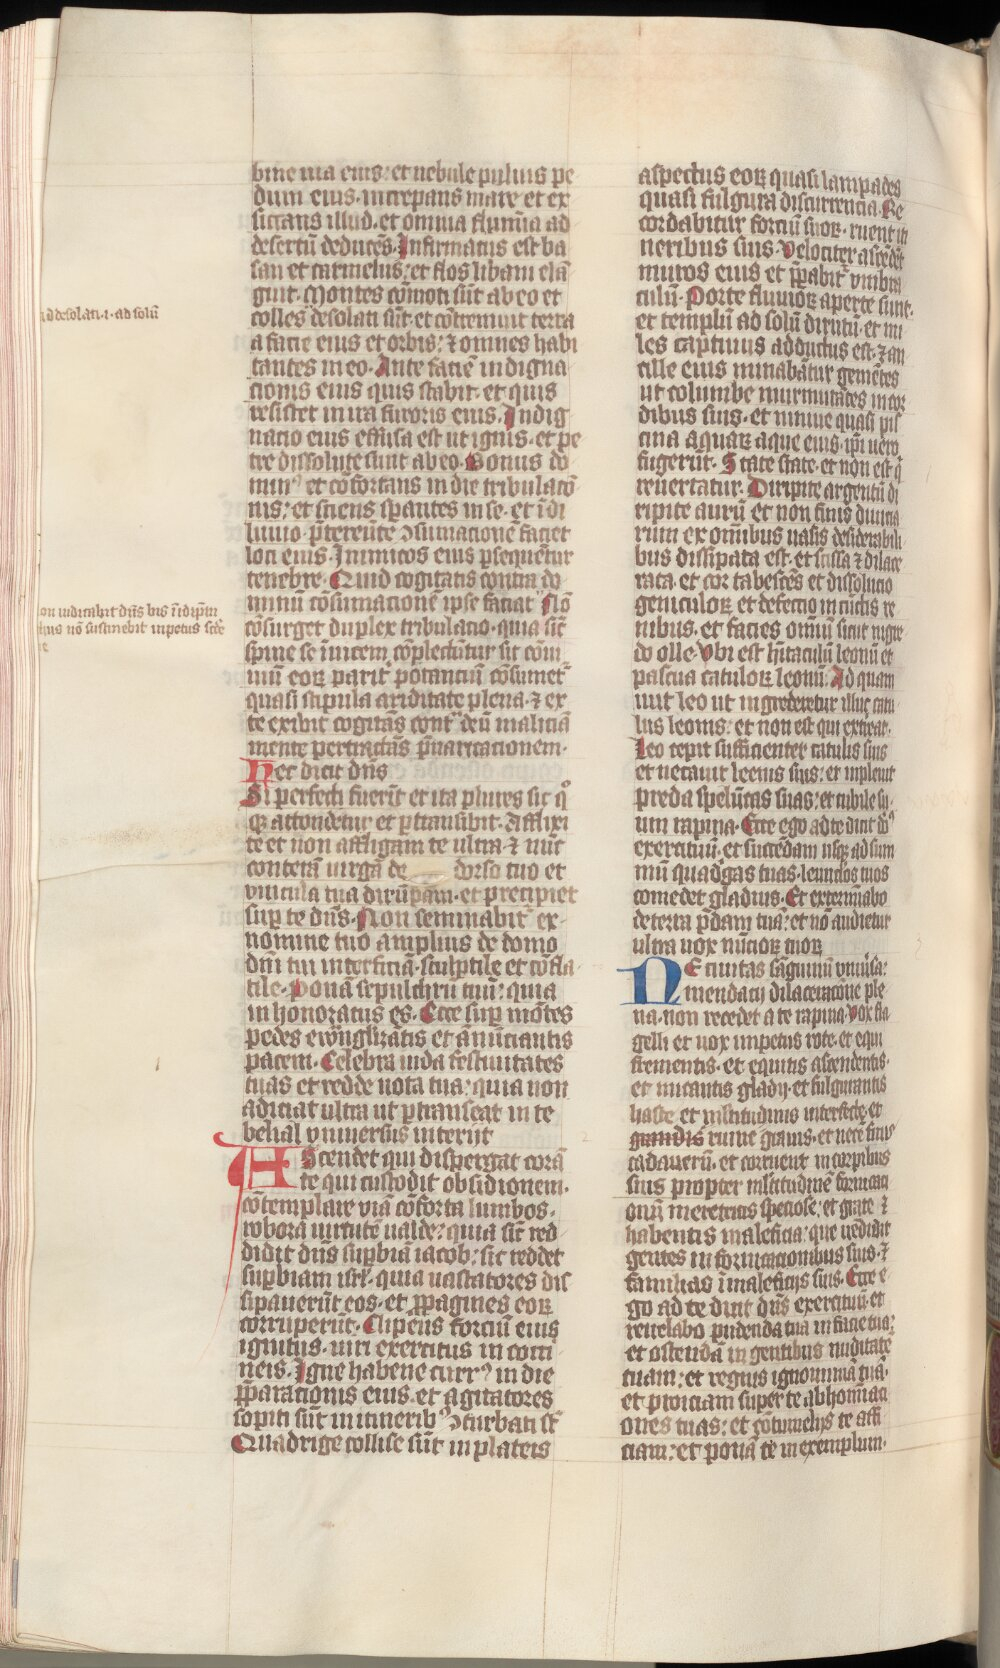 d desolati .i. ad solū
on iudicabit dn̄s bis ī idip̄m
tius nō sustinebit inpetus scd̄e
bine uia eius: et nebule puluis pe
dum eius. increpans mare et ex
siccans illud. et omnia flumīa ad
desertū deducēs. Infirmatus est ba
san et carmelus: et flos libani elā
guit. Montes cōmoti sūt ab eo et
colles desolati sūt. et cōtremuit terra
a facie eius et orbis: ⁊ omnes habi
tantes in eo. Ante faciē indigna
cionis eius quis stabit. et quis
resistet in ira furoris eius. Indig
nacio eius effusa est ut ignis. et pe
tre dissolute sunt ab eo. Bonus do
minꝰ et cōfortans in die tribulacō
nis: et sciens sꝑantes in se. et ī di
luuio p̄tereūte ꝯsumacionē faciet
loci eius. Inimicos eius ꝑsequētur
tenebre. Quid cogitatis contra do
minū cōsumacionē ipse faciat Nō
cōsurget duplex tribulacio. quia sic̄
spine se īuicem cōplectūtur sic cōui
uiū eoꝝ parit᷑ potanciū cōsumet᷑
quasi stipula ariditate plena. ⁊ ex
te exibit cogitās cont᷑ deū maliciā
mente pertractās p̄uaricacionem.
Hec dicit dn̄s
Si perfecti fuerīt et ita plures sic qͦ
qꝫ attondētur et ꝑtransibit. Afflixi
te et non affligam te ultra. ⁊ nūc
conterā uirgā de dorso tuo et
vincula tua dirūpam. et precipiet
suꝑ te dn̄s. Non seminabit᷑ ex
nomine tuo amplius de domo
dei tui interficiā. sculptile et cōfla
tile. Ponā sepulchrū tuū: quia
inhonoratus es. Ecce suꝑ mōtes
pedes ewnglizātis et ānūciantis
pacem. Celebra iuda festiuitates
tuas et redde uota tua: quia non
adiciat ultra ut ꝑtranseat in te
belial vniuersus interiit
Ascendet qui dispergat corā
te qui custodit obsidionem.
cōtemplare uiā cōforta lumbos.
robora uirtutē ualde: quia sic̄ red
didit dn̄s suꝑbiā iacob: sic reddet
suꝑbiam isrl̄. quia uastatores dis
sipauerūt eos. et ꝓpagines eoꝝ
corruperūt. Clipeus forciū eius
ignitus. uiri exercitus in cocci
neis. Igne habene currꝰ in die
p̄parationis eius. et agitatores
sopiti sūt in itineribꝰ ꝯturbati st̄
Quadrige collise sūt in plateis
aspectus eoꝝ quasi lampades
quasi fulgura discurrencia. Re
cordabitur forciū suoꝝ. ruent iti
neribus suis. Velociter ascēdēt
muros eius et p̄pabit᷑ vmbra
culū. Porte fluuioꝝ aperte sunt.
et templū ad solū dirutū. et mi
les captiuus adductus est. ⁊ an
cille eius minabātur gemētes
ut columbe murmurātes in cor
dibus suis. et niniue quasi pis
cina aquaꝝ aque eius. ip̄i uero
fugerūt. State state. et non est qͥ
reuertatur. Diripite argentū di
ripite aurū et non finis diuicia
rum ex omībus uasis desiderabili
bus dissipata est. et scissa ⁊ dilace
rata. et cor tabescēs et dissolucio
geniculoꝝ et defectio in cūctis re
nibus. et facies omīū sicut nigre
do olle. Vbi est hītaculū leonū et
pascua catuloꝝ leonū. Ad quam
iuit leo ut ingrederetur illuc catu
lus leonis: et non est qui exterat.
Leo cepit sufficienter catulis suis
et necauit leenis suis: et inpleuit
preda speluncas suas: et cubile su
um rapina. Ecce ego ad te dicit dn̄s
exercituū. et succēdam usqꝫ ad sum
mū quadͥgas tuas. leunclos tuos
comedet gladius. Et extermīabo
de terra p̄dam tuā: et nō audietur
ultra uox nūcioꝝ tuoꝝ
Ve ciuitas sāguinū vniu͛sa:
mendacij dilaceracōne ple
na. non recedet a te rapina. Vox fla
gelli et uox impetus rote. et equi
frementis. et equitis ascendentis.
et micantis gladij. et fulgurantis
haste et multitudinis interfecte. et
grandis ruine grauis. et nec ē finis
cadauerū. et corruent in corꝑibus
suis propter multitudinē fornicaci
onū meretricis speciose. et grate ⁊
habentis maleficia: que uendidit
gentes in fornicacionibus suis. ⁊
familias ī maleficijs suis. Ecce e
go ad te dicit dn̄s exercituū. et
reuelabo pudenda tua in facie tua:
et ostendā in gentibus nuditatē
tuam: et regnis ignominiā tuā.
et proiciam super te abhomīaci
ones tuas: et cōtumelijs te affi
ciam: et ponā te in exemplum.